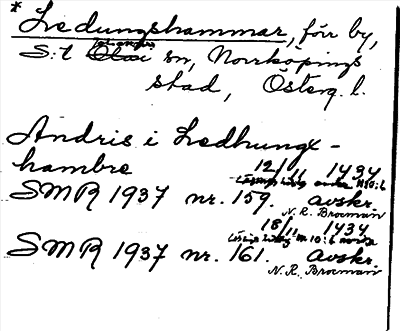 * Ledungshammar, förr by,
Johannes
S:t Olai sn, Norrköpings
stad, Österg. l.
Andris i Ledhungx-
hambre 12/11 1434
SMR 1937 nr. 159. avskr.
N. R. Brocman
18/11 1434
SMR 1937 nr. 161. avskr.
N. R. Brocman